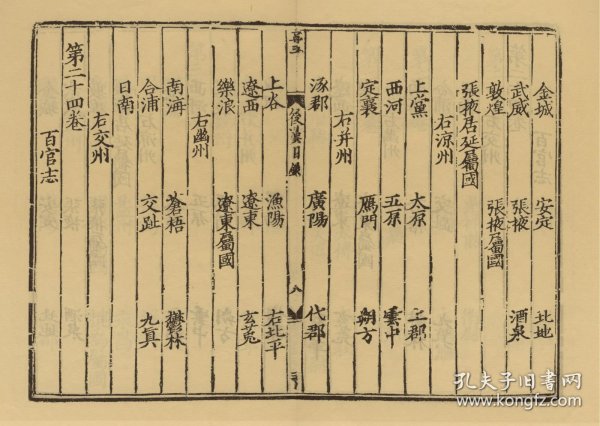 金城 安定 北地
武威 張掖 酒泉
敦煌 張掖屬國
張掖居延屬國
右涼州
上黨 太原 上郡
西河 五原 雲中
定襄 鴈門 朔方
右并州
涿郡 廣陽 代郡
後漢目録 八
上谷 漁陽 右北平
遼西 遼東 玄菟
樂浪 遼東屬國
右幽州
南海 蒼梧 鬱林
合浦 交趾 九真
日南
右交州
第二十四卷
百官志
孔夫子旧书网
www.kongfz.com